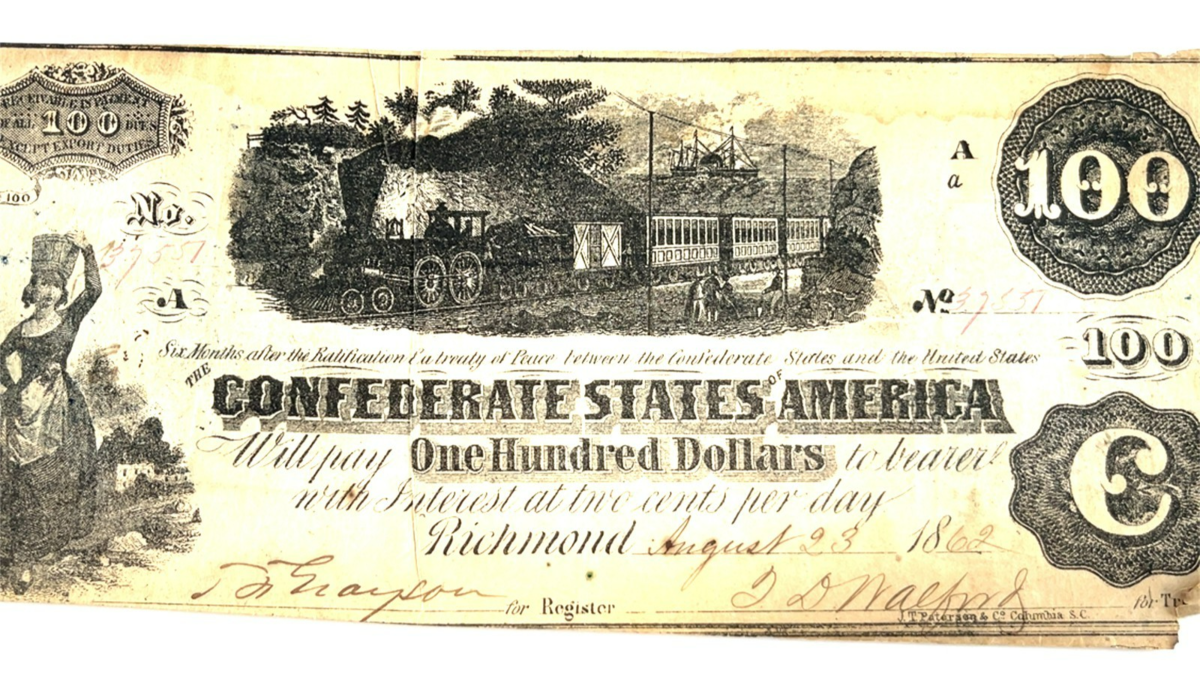 RECEIVABLE IN PAYMENT
OF ALL 100 DUES
EXCEPT EXPORT DUTIES
100
No.
37551
A
A
a
100
No 37551
100
Six Months after the Ratification of a treaty of Peace between the Confederate States and the United States
THE CONFEDERATE STATES OF AMERICA
Will pay One Hundred Dollars to bearer
with Interest at two cents per day
Richmond August 23 1862
C
for Register
for Tr
J.T. Paterson & Co Columbia S.C.